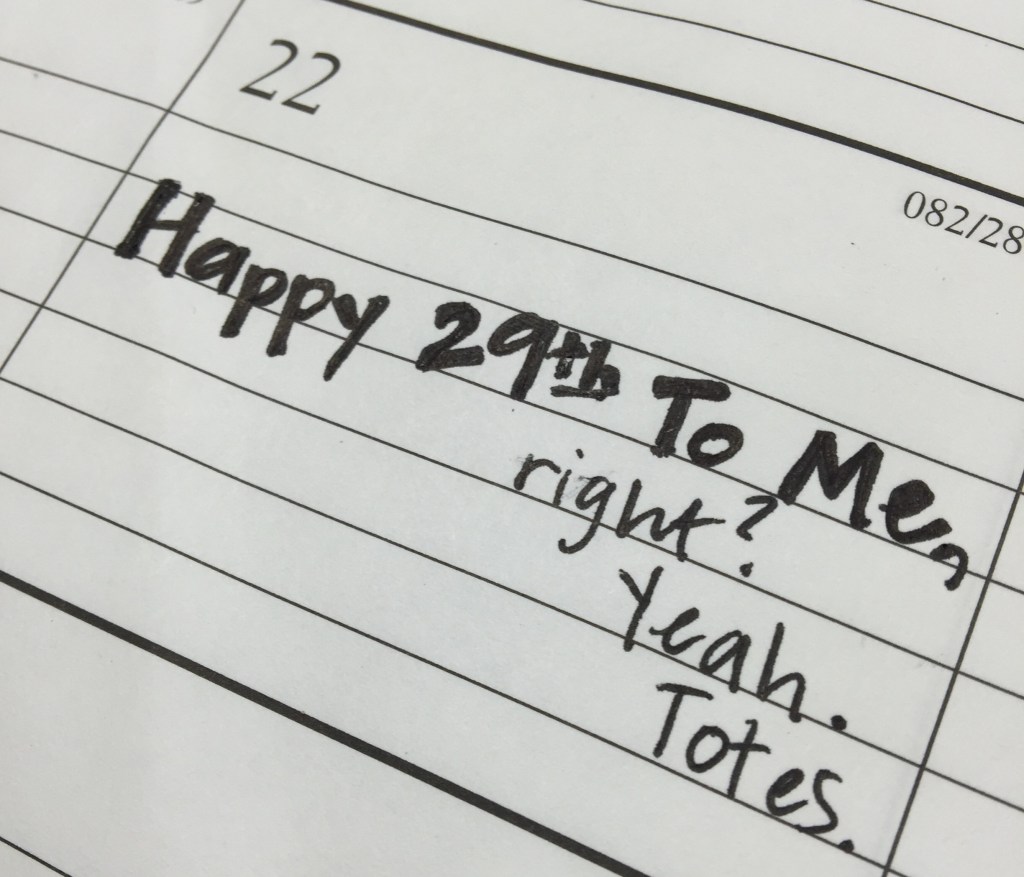 22
082/28
Happy 29th To Me,
right?
Yeah.
Totes.